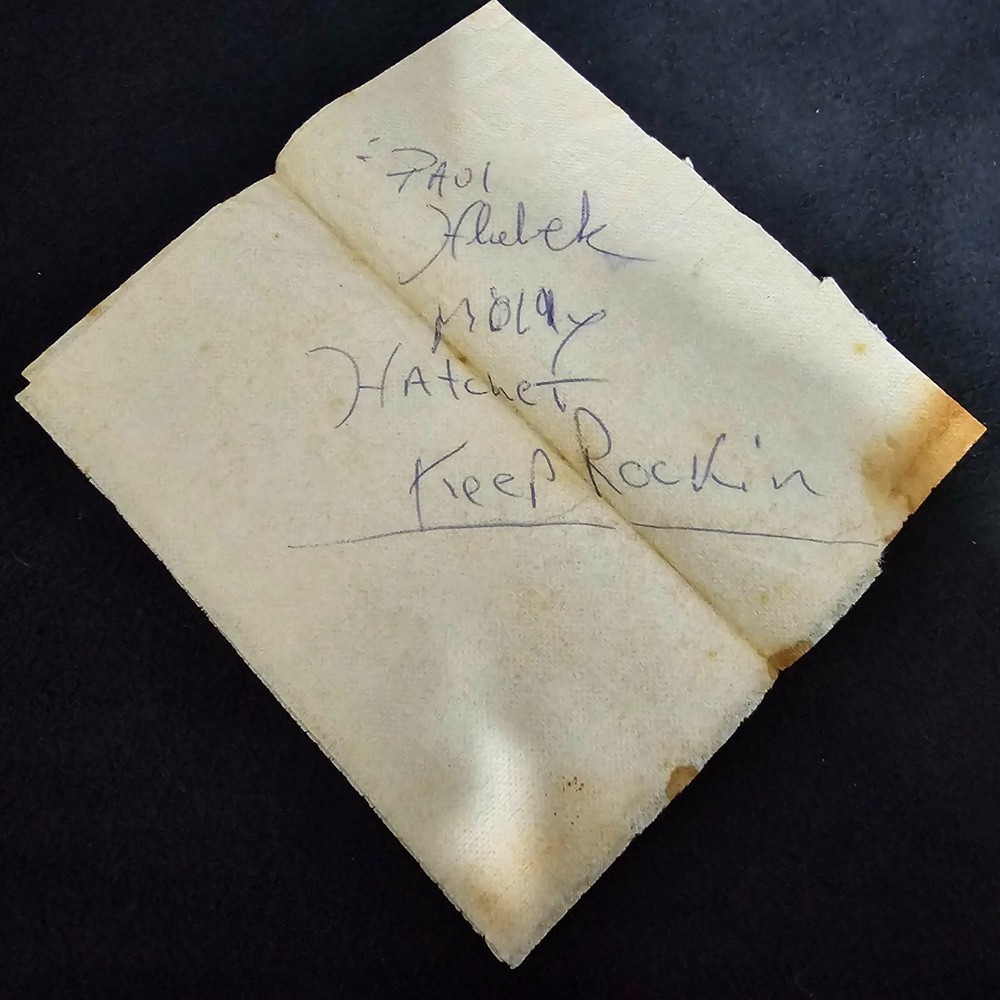 PAUl
Hlubek
MOlly
HAtcheT
Keep Rockin